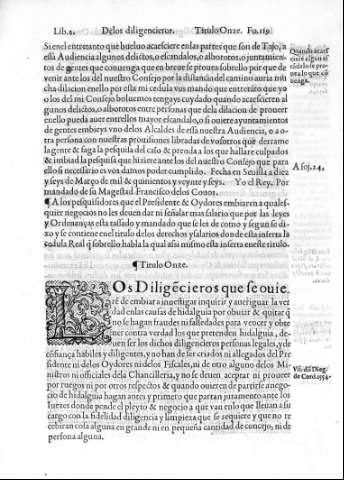 Lib.2. De los diligencieros. Titulo Onze. Fo.119
Si en el entretanto que hueluo acaesciere en las partes que son de Tajo, a
essa Audiencia algunos delictos, o escandalos, o alborotos, o juntamien-
tos de gentes que conuenga que en breue se prouea sobrello por que de
venir ante los del nuestro Consejo por la distancia del camino auria mu
cha dilacion enello por esta mi cedula vos mando que entretáto que yo
o los del mi Consejo boluemos tengays cuydado quando acaescieren al
gunos delictos, o alborotos entre personas que dela dilacion de proueer
enello pueda auer entrellos mayor escandalo, o si ouiere ayuntamientos
de gentes embieys vno delos Alcaldes de essa nuestra Audiencia, o a o-
tra persona con nuestras prouisiones libradas de vosotros que derrame
la gente & faga la pesquisa del caso & prenda a los que hallare culpados
& imbiad la pesquisa que hiziere ante los del nuestro Consejo que para
ello si necessario es vos damos poder cumplido. Fecha en Seuilla a diez
y seys de Março de mil & quinientos y veynte y seys. Yo el Rey. Por
mandado de su Magestad Francisco delos Couos.
Quando acaes
ciere algun al
A fol. 24.
¶ A los pesquisidores que el Presidente & Oydores embiaren a qualef-
quier negocios no les deuen dar ni señalar mas salario que por las leyes
y Ordenanças esta tassado y mandado que se les de como y segun se di-
xo y se contiene en el titulo delos derechos y salarios donde esta inserta la
cedula Real q̃ sobrello habla la qual assi mismo esta inserta en este titulo.
¶ Titulo Onze.
LOs Diligẽcieros que se ouie.
ré de embiar a inuestigar inquirir y aueriguar la ver
dad en las causas de hidalguia por obuiar & quitar q̃
no se hagan fraudes ni falsedades para vencer y obte
ner contra verdad los que pretenden hidalguia, de-
uen ser los dichos diligencieros personas legales, y de
cõfiança habiles y diligentes, y no han de ser criados ni allegados del Pre
sidente ni delos Oydores ni delos Fiscales, ni de otro alguno delos Mi-
nistros ni officiales dela Chancilleria, y no se deuen aceptar ni proueer
por ruegos ni por otros respectos & quando ouieren de partirse a nego-
cio de hidalguia hagan antes y primero que partan juramento ante los
juezes donde pende el pleyto & negocio a que van en lo que lleuan a su
cargo con la fidelidad diligencia y limpieza que se requiere y que no re
cebiran cosa alguna en grande ni en pequeña cantidad de concejo, ni de
persona alguna.
de Cord. 1554.